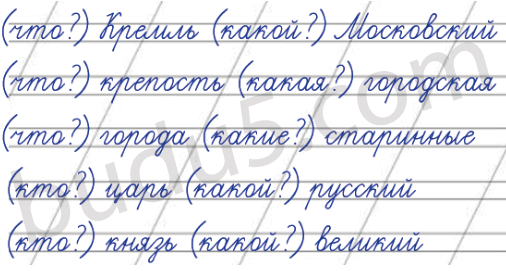 (что?) Кремль (какой?) Московский
(что?) крепость (какая?) городская
(что?) города (какие?) старинные
(кто?) царь (какой?) русский
(кто?) князь (какой?) великий
budu5.com